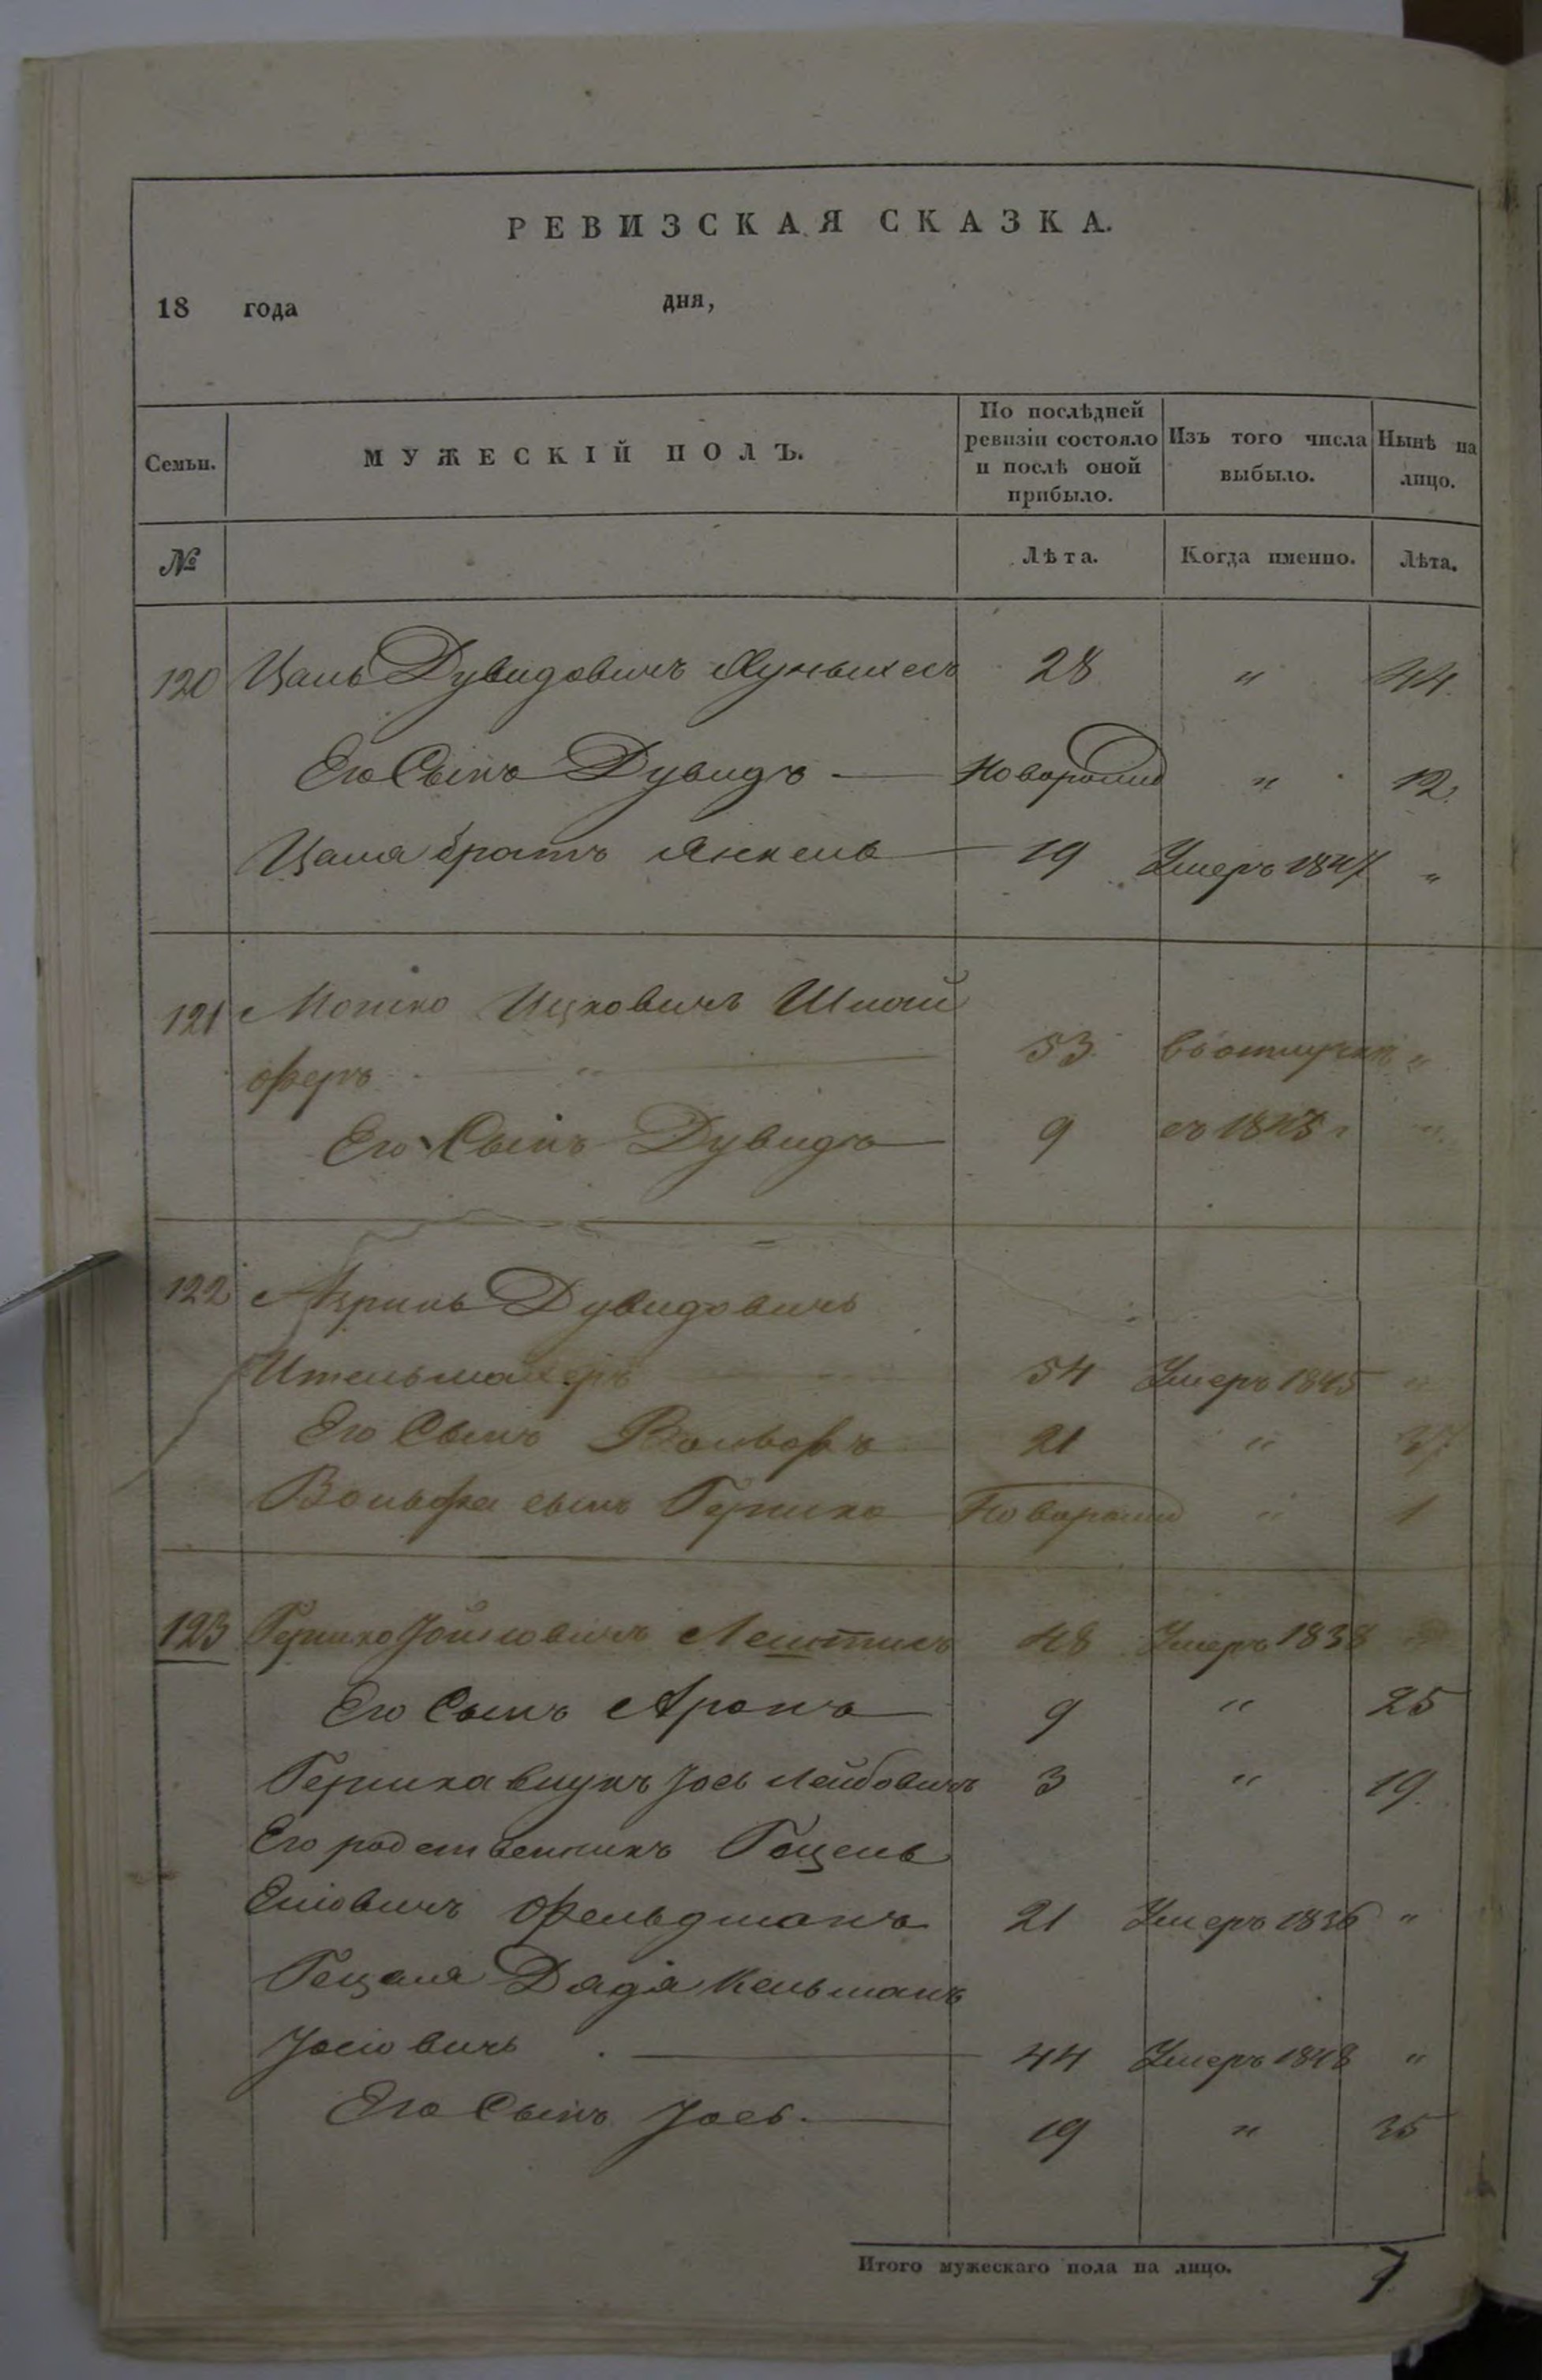 РЕВИЗСКАЯ СКАЗКА.
18 года дня,
Семьи. МУЖЕСКІЙ ПОЛЪ. По послѣдней ревизіи состояло и послѣ оной прибыло. Изъ того числа выбыло. Нынѣ на лицо.
№ Лѣта. Когда именно. Лѣта.
120 Цаль Дувидовичъ 28 " 44.
Его Сынъ Дувидъ — Новорожд " 12.
Цаля братъ Янкель — 19 Умеръ 1847 "
121 Мошко Ицковичъ Шпай
феръ " — 53. въ отлучкѣ "
Его Сынъ Дувидъ — 9 съ 1843 г "
122 Азриль Дувидовичъ
54 Умеръ 1845 "
Его Сынъ Вольфъ 21 " 37
Вольфа сынъ Гершко — Новорожд " 1
123 Гершко 48 Умеръ 1838 "
Его Сынъ Аронъ — 9 " 25
Гершка внукъ Іось Лейбовичъ 3 " 19.
Его родственникъ Гецель
Еліовичъ Фельдманъ 21 Умеръ 1836 "
Гецеля Дядя Кельманъ
Іосіовичъ . — 44 Умеръ 1848 "
Его Сынъ Іось. — 19 " 35
Итого мужескаго пола на лицо. 7